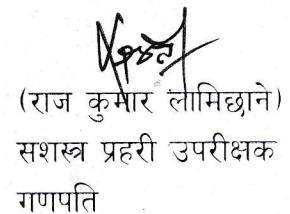 (राज कुमार लामिछाने)
सशस्त्र प्रहरी उपरीक्षक
गणपति